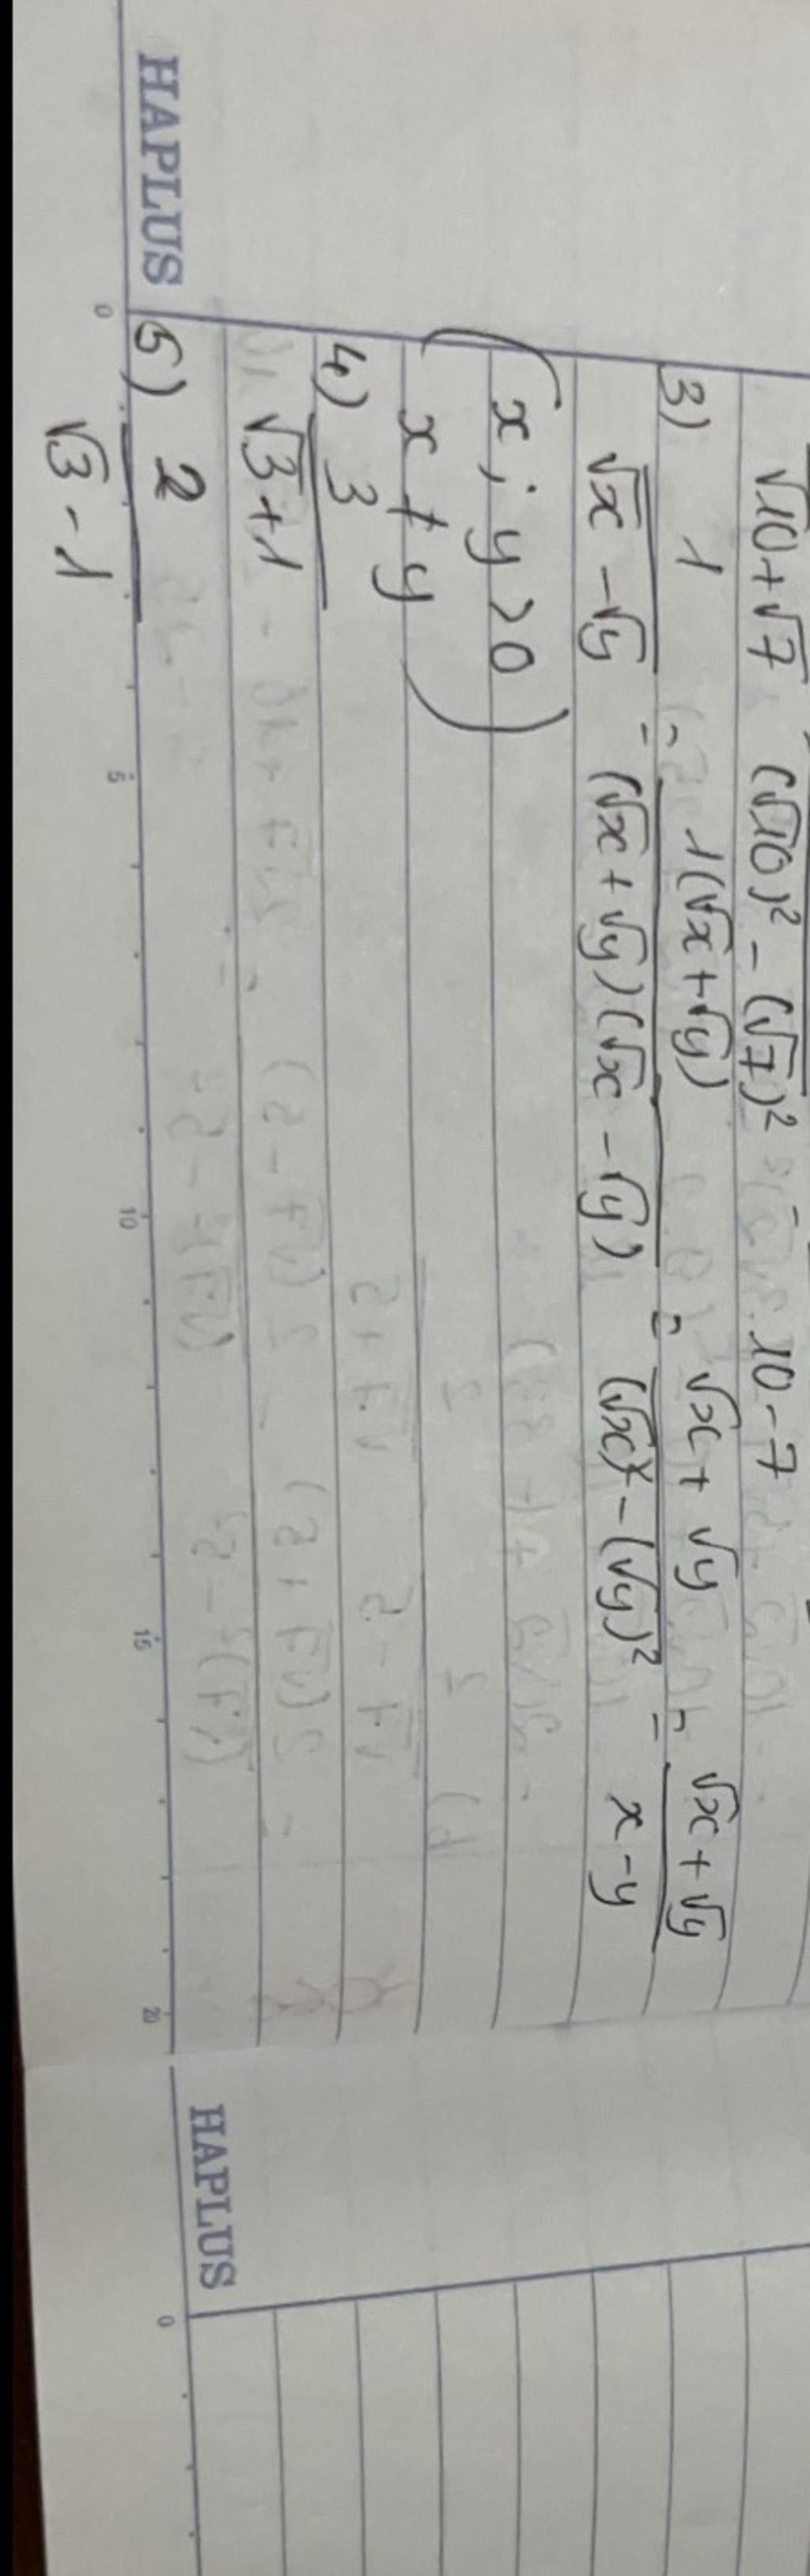 √10+√7 (√10)² - (√7)² 10-7
3) 1 = 1(√x+√y) = √x + √y = √x + √y
√x - √y (√x + √y)(√x - √y) (√x)² - (√y)² x - y
(x; y > 0
x ≠ y)
4) 3
√3+1
5) 2
√3 - 1
HAPLUS
0 5 10 15 20
HAPLUS
0